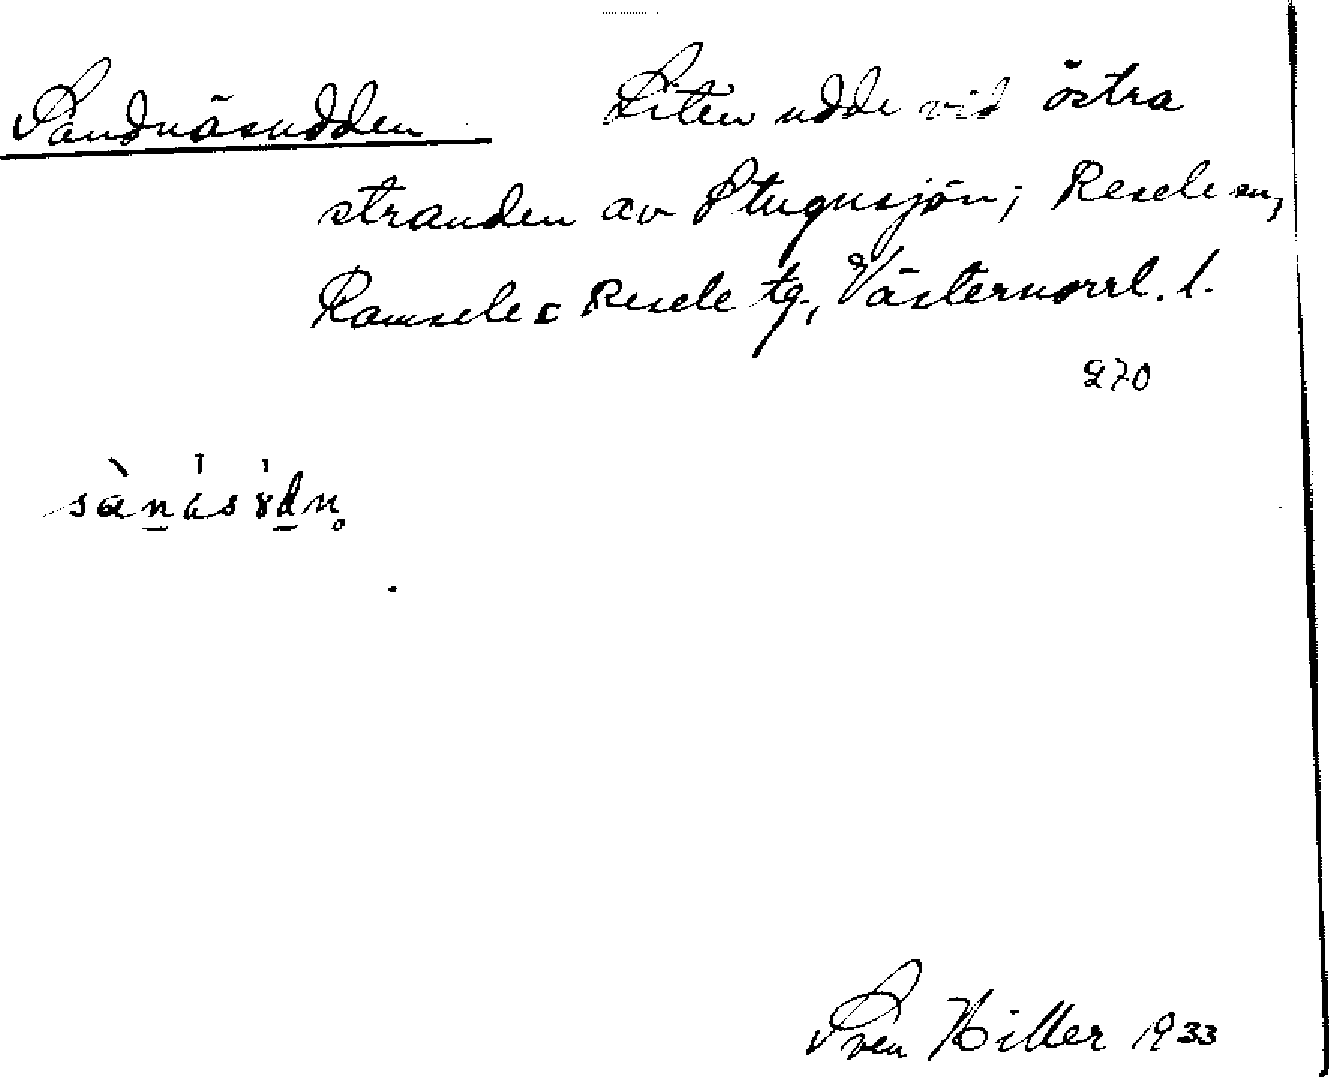 Sandnäsudden Liten udde vid östra
stranden av Stugusjön; Resele sn,
Ramsele o Resele tg., Västernorrl. l.
270
Sven Hiller 1933